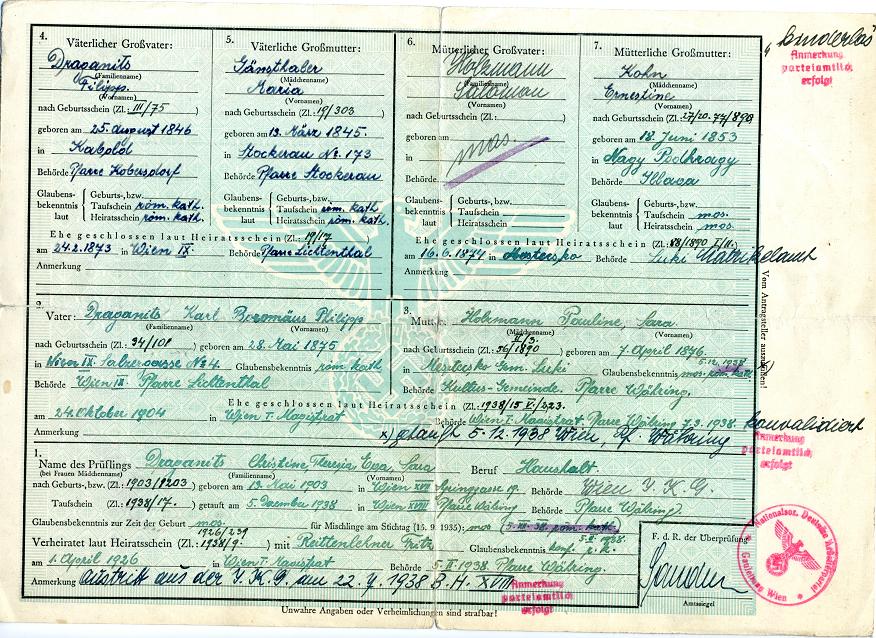 4. Väterlicher Großvater:
Draganits
(Familienname)
Filipp.
(Vornamen)
nach Geburtsschein (Zl.: III/75)
geboren am 25. August 1846
in Kabold
Behörde Pfarre Kobersdorf
Glaubens- bekenntnis laut { Geburts-, bzw. Taufschein röm. kath.
Heiratsschein röm. kath.
5. Väterliche Großmutter:
Gängthaber
(Mädchenname)
Maria
(Vornamen)
nach Geburtsschein (Zl.: 19/303
geboren am 13. März 1845.
in Stockerau No. 173
Behörde Pfarre Stockerau
Glaubens- bekenntnis laut { Geburts-, bzw. Taufschein röm. kath
Heiratsschein röm. kath.
Ehe geschlossen laut Heiratsschein (Zl.: 19/17)
am 24.2.1873 in Wien IX. Behörde Pfarre Lichtenthal
Anmerkung
6. Mütterlicher Großvater:
Holzmann
(Familienname)
Salomon
(Vornamen)
nach Geburtsschein (Zl.:
geboren am
in mos.
Behörde
Glaubens- bekenntnis laut { Geburts-, bzw. Taufschein
Heiratsschein
7. Mütterliche Großmutter:
Kohn
(Mädchenname)
Ernestine
(Vornamen)
nach Geburtsschein (Zl.:
geboren am 18. Juni 1853
in Nagy Podhragy
Behörde Illava
Glaubens- bekenntnis laut { Geburts-, bzw. Taufschein mos.
Heiratsschein mos.
Ehe geschlossen laut Heiratsschein (Zl.:
am 16.6.1874 in Mestersko Behörde Luki Matrikelamt
Anmerkung
kinderlos
Anmerkung
parteiamtlich
erfolgt
2. Vater: Draganits Karl Boromäus Philipp
(Familienname) (Vornamen)
nach Geburtsschein (Zl.: 34/101 geboren am 28. Mai 1875
in Wien IX. Salzergasse No 4. Glaubensbekenntnis röm kath
Behörde Wien IX. Pfarre Lichtenthal
3. Mutter: Holzmann Pauline, Sara
(Mädchenname) (Vornamen)
nach Geburtsschein (Zl.: 56/1890 geboren am 7. April 1876.
5.12.1938
in Mestecsko Gem. Luki Glaubensbekenntnis mos. röm. kath. x)
Behörde Kultus-Gemeinde. Pfarre Währing.
Ehe geschlossen laut Heiratsschein (Zl.: 1938/15 V./223.
am 24. Oktober 1904 in Wien I. Magistrat Behörde Wien I. Magistrat Pfarre Währing 7.3.1938. konvalidiert
Anmerkung x) getauft 5.12.1938 Wien, Pf. Währing
Anmerkung
parteiamtlich
erfolgt
Vom Antragsteller auszufüllen!
1. Name des Prüflings Draganits Christine Theresia Eva, Sara Beruf Haushalt.
(bei Frauen Mädchenname) (Familienname) (Vornamen)
nach Geburts-, bzw. (Zl.: 1903/1203 geboren am 13. Mai 1903 in Wien XVII Behörde Wien I. K. G.
Taufschein (Zl.: 1938/17. ) getauft am 5. Dezember 1938 in Wien XVIII Pfarre Währing Behörde Pfarre Währing.
Glaubensbekenntnis zur Zeit der Geburt mos. für Mischlinge am Stichtag (15. 9. 1935): mos
1926/239
5.12.1938.
Verheiratet laut Heiratsschein (Zl.: 1938/9. ) mit Reittenlehner Fritz Glaubensbekenntnis konf. r. k.
am 1. April 1926 in Wien I. Magistrat Behörde 5. XII. 1938 Pfarre Währing.
Anmerkung austritt aus der I. K. G. am 22. 7. 1938 B. H. XVIII
Anmerkung
parteiamtlich
erfolgt
F. d. R. der Überprüfung
Amtssiegel
Nationalsoz. Deutsche Arbeiterpartei
Gauleitung Wien
Unwahre Angaben oder Verheimlichungen sind strafbar!